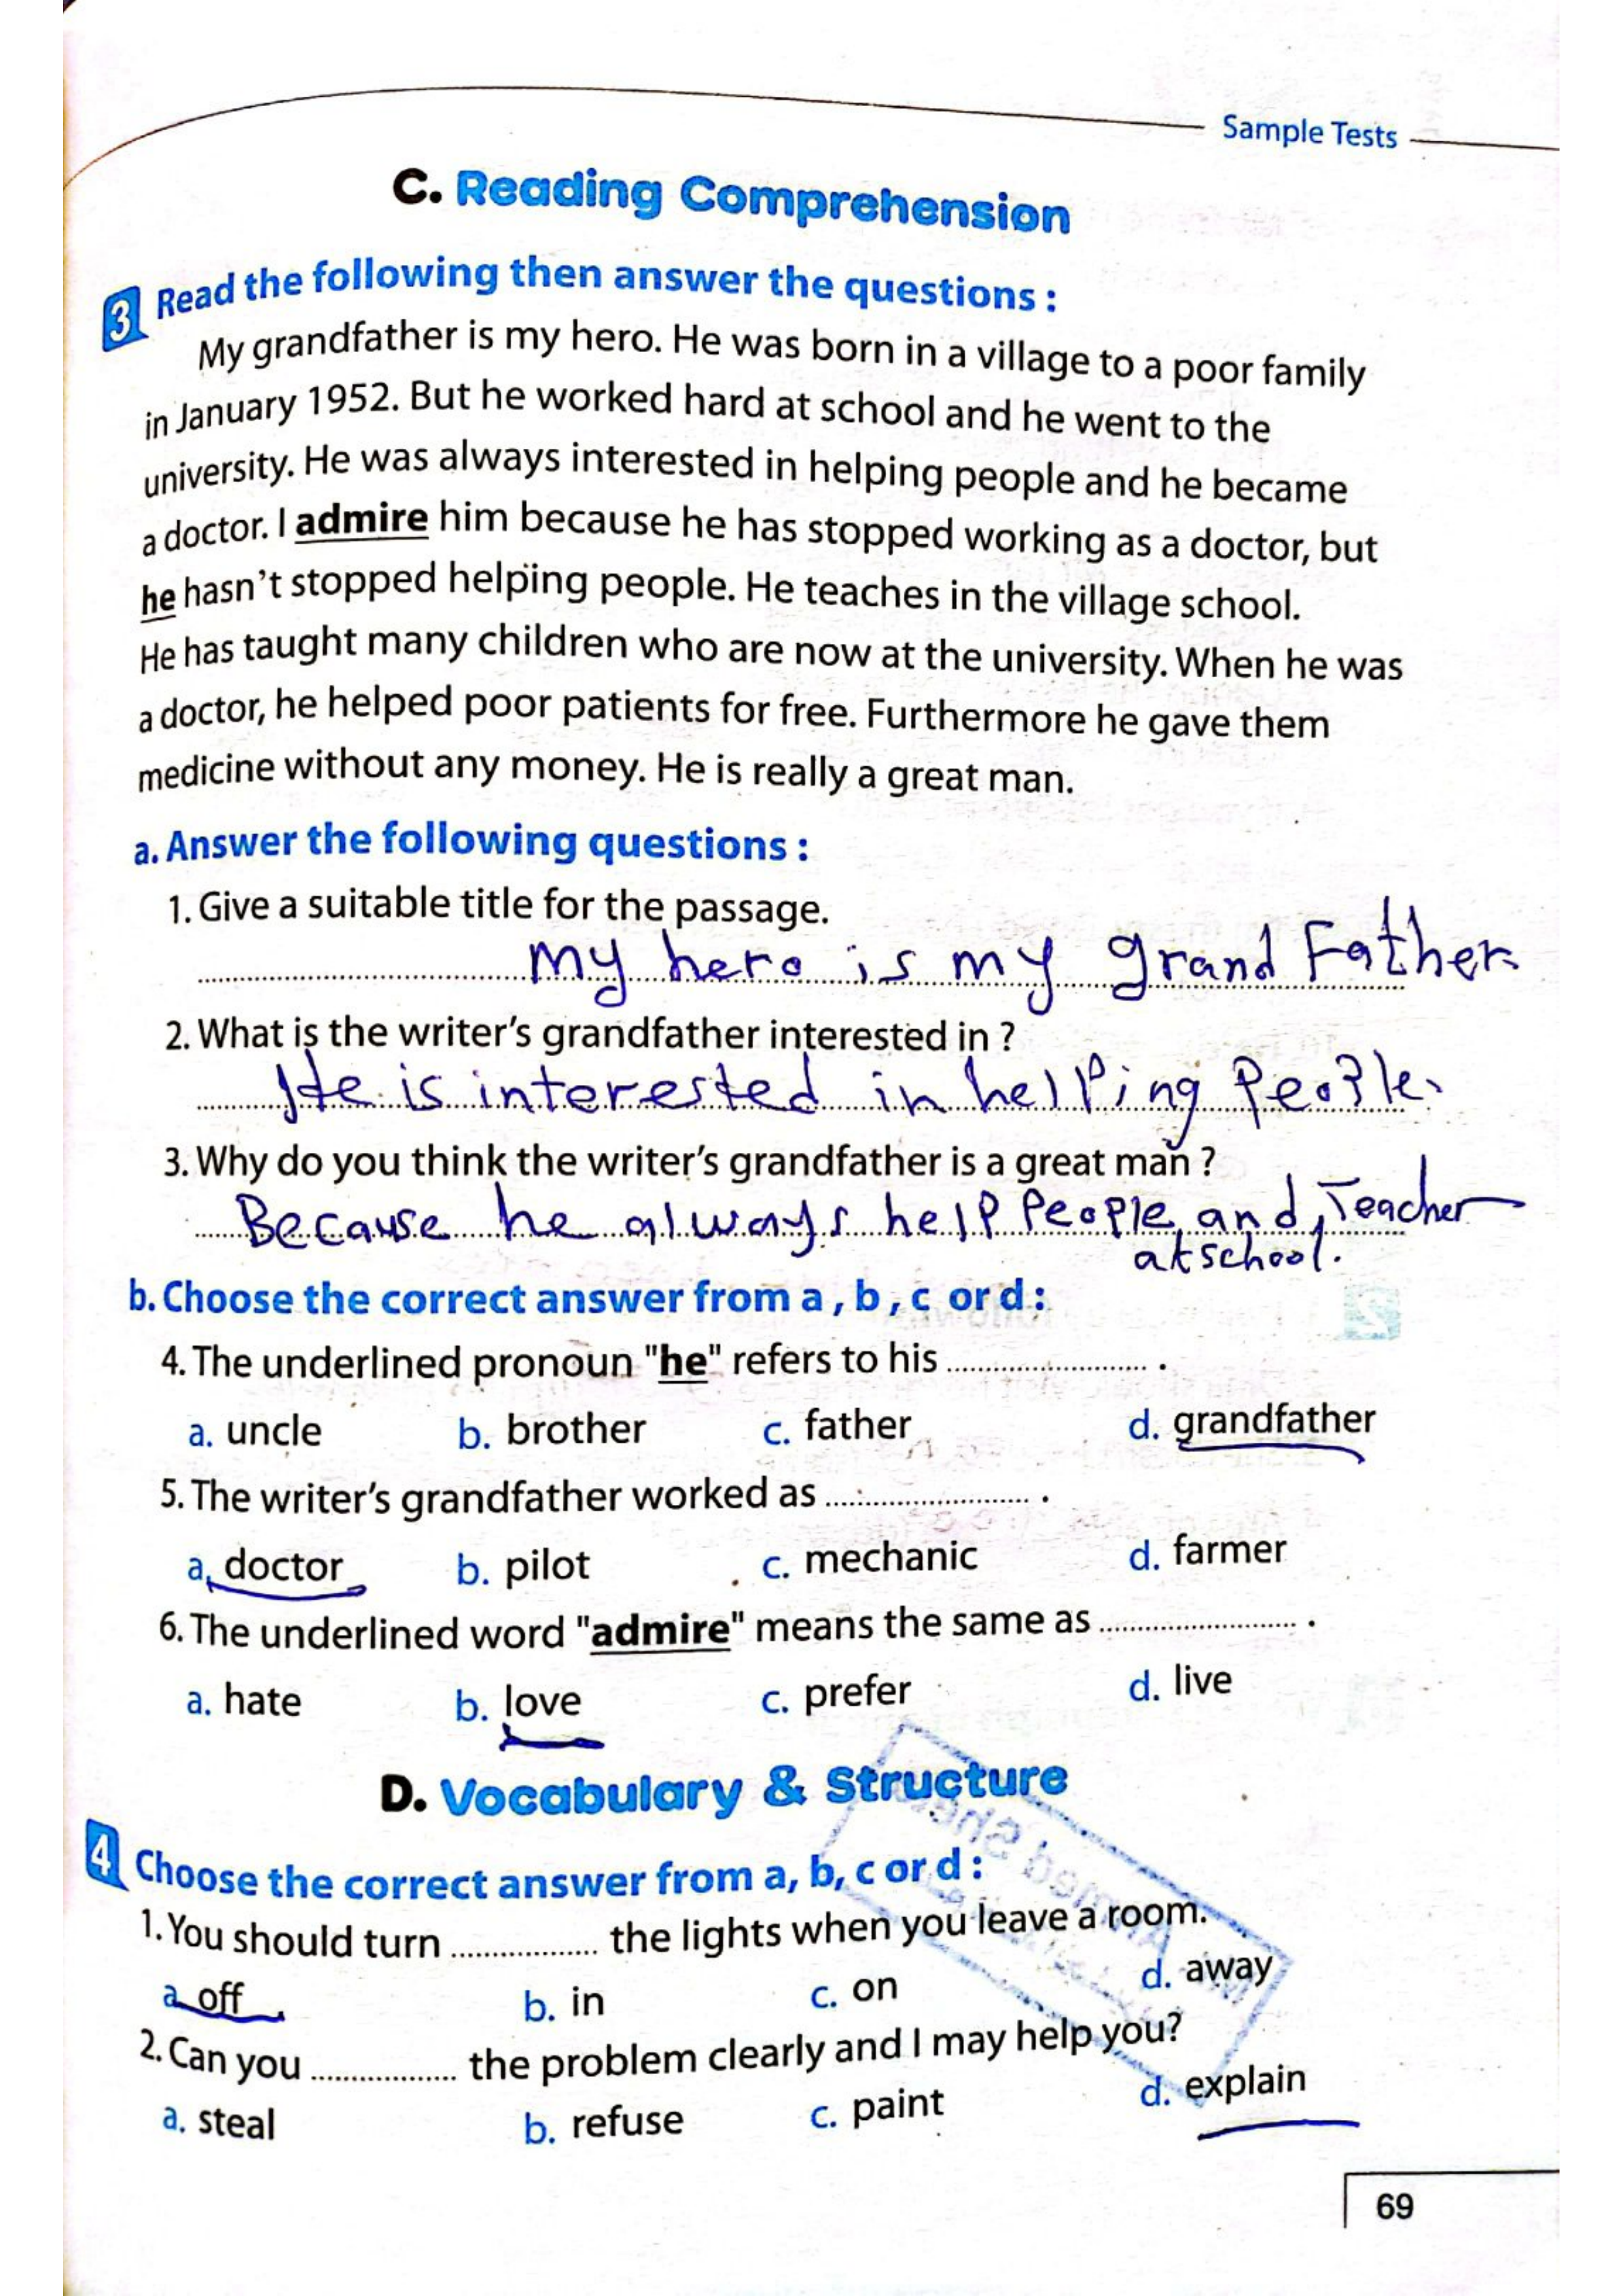 Sample Tests
C. Reading Comprehension
3 Read the following then answer the questions :
My grandfather is my hero. He was born in a village to a poor family
in January 1952. But he worked hard at school and he went to the
university. He was always interested in helping people and he became
a doctor. I admire him because he has stopped working as a doctor, but
he hasn't stopped helping people. He teaches in the village school.
He has taught many children who are now at the university. When he was
a doctor, he helped poor patients for free. Furthermore he gave them
medicine without any money. He is really a great man.
a. Answer the following questions :
1. Give a suitable title for the passage.
my hero is my grand Father.
2. What is the writer's grandfather interested in ?
He is interested in helping People.
3. Why do you think the writer's grandfather is a great man ?
Because he always help People, and, Teacher
at school.
b. Choose the correct answer from a , b , c or d :
4. The underlined pronoun "he" refers to his ........................ .
a. uncle b. brother c. father d. grandfather
5. The writer's grandfather worked as ........................ .
a. doctor b. pilot c. mechanic d. farmer
6. The underlined word "admire" means the same as ........................ .
a. hate b. love c. prefer d. live
D. Vocabulary & Structure
4 Choose the correct answer from a, b, c or d :
1. You should turn ................. the lights when you leave a room.
a. off b. in c. on d. away
2. Can you ................. the problem clearly and I may help you?
a. steal b. refuse c. paint d. explain
69